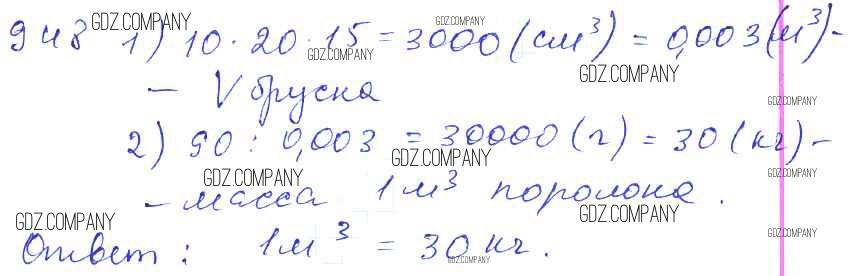 948 1) 10 · 20 · 15 = 3000 (см³) = 0,003 (м³) -
- V бруска
2) 90 : 0,003 = 30000 (г) = 30 (кг) -
- масса 1 м³ поролона.
Ответ: 1 м³ = 30 кг.
GDZ.COMPANY
GDZ.COMPANY
GDZ.COMPANY
GDZ.COMPANY
GDZ.COMPANY
GDZ.COMPANY
GDZ.COMPANY
GDZ.COMPANY
GDZ.COMPANY
GDZ.COMPANY
GDZ.COMPANY
GDZ.COMPANY